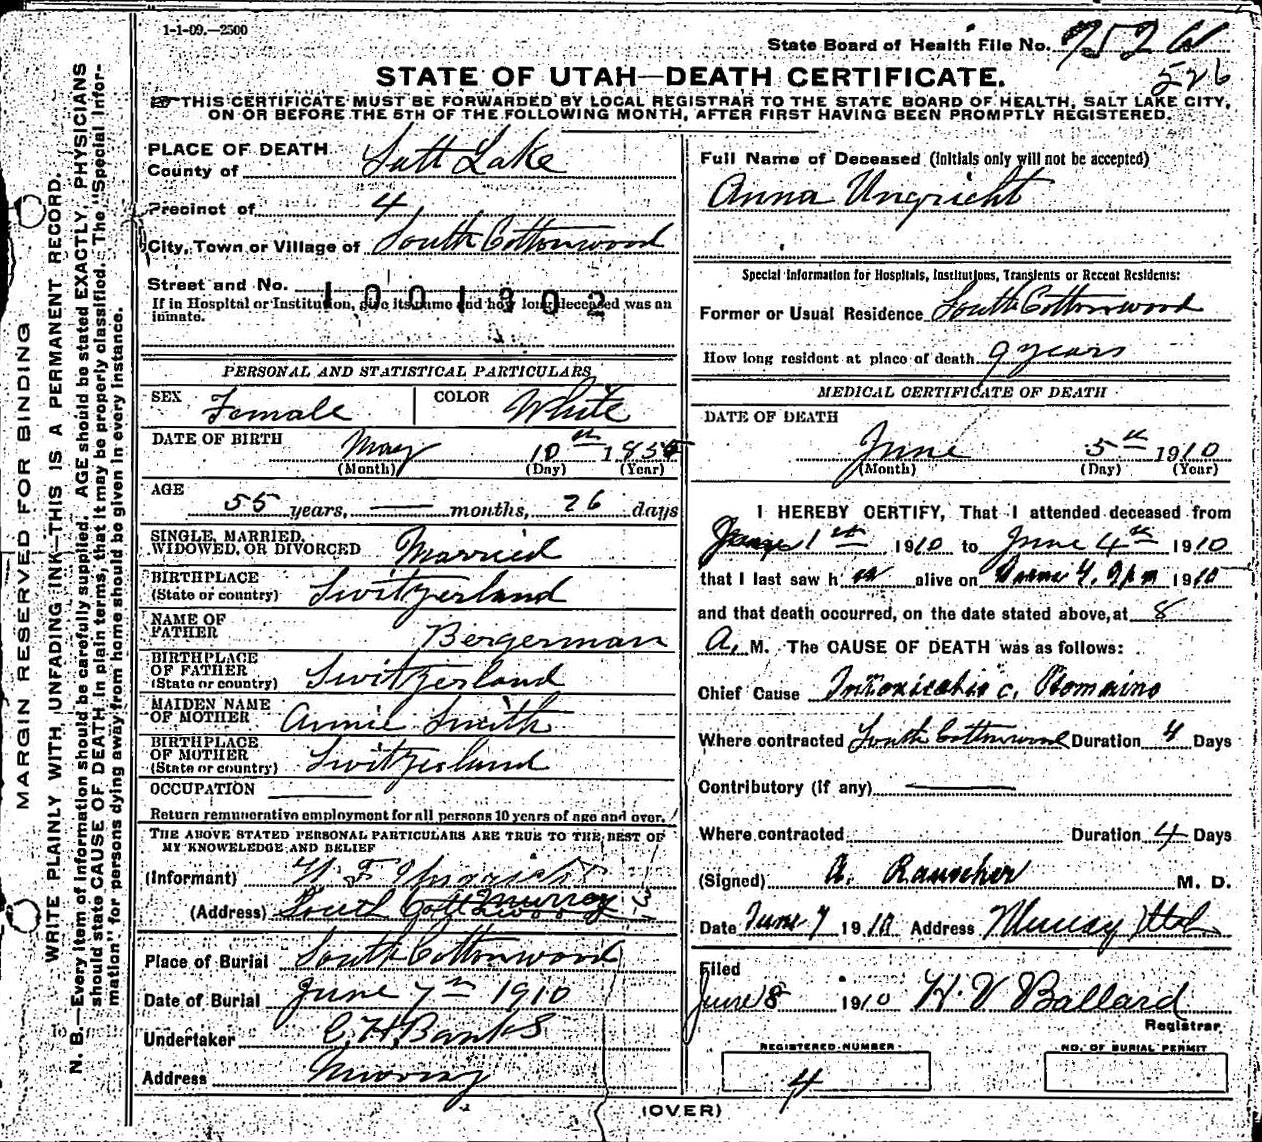 1-1-09.—2500
State Board of Health File No. 752 W
526
STATE OF UTAH—DEATH CERTIFICATE.
THIS CERTIFICATE MUST BE FORWARDED BY LOCAL REGISTRAR TO THE STATE BOARD OF HEALTH, SALT LAKE CITY,
ON OR BEFORE THE 5TH OF THE FOLLOWING MONTH, AFTER FIRST HAVING BEEN PROMPTLY REGISTERED.
MARGIN RESERVED FOR BINDING
WRITE PLAINLY WITH UNFADING INK—THIS IS A PERMANENT RECORD.
N. B.—Every item of information should be carefully supplied. AGE should be stated EXACTLY, PHYSICIANS
should state CAUSE OF DEATH in plain terms, that it may be properly classified. The "Special Infor-
mation" for persons dying away from home should be given in every instance.
PLACE OF DEATH
County of Salt Lake
Precinct of 4
City, Town or Village of South Cottonwood
Street and No.
1001302
If in Hospital or Institution, give its name and how long deceased was an
inmate.
PERSONAL AND STATISTICAL PARTICULARS
SEX Female COLOR White
DATE OF BIRTH May 10th 185
(Month) (Day) (Year)
AGE
55 years, — months, 26 days
SINGLE, MARRIED,
WIDOWED, OR DIVORCED Married
BIRTHPLACE
(State or country) Switzerland
NAME OF
FATHER Bergerman
BIRTHPLACE
OF FATHER
(State or country) Switzerland
MAIDEN NAME
OF MOTHER Annie Smith
BIRTHPLACE
OF MOTHER
(State or country) Switzerland
OCCUPATION —
Return remunerative employment for all persons 10 years of age and over.
THE ABOVE STATED PERSONAL PARTICULARS ARE TRUE TO THE BEST OF
MY KNOWELEDGE AND BELIEF
(Informant) F Ungricht
(Address) South Cottonwood Murray
Place of Burial South Cottonwood
Date of Burial June 7th 1910
Undertaker C. H. Banks
Address Murray
Full Name of Deceased (Initials only will not be accepted)
Anna Ungricht
Special Information for Hospitals, Institutions, Transients or Recent Residents:
Former or Usual Residence South Cottonwood
How long resident at place of death 9 years
MEDICAL CERTIFICATE OF DEATH
DATE OF DEATH
June 5th 1910
(Month) (Day) (Year)
I HEREBY CERTIFY, That I attended deceased from
June 1st 1910 to June 4th 1910
that I last saw her alive on June 4, 9pm 1910
and that death occurred, on the date stated above, at 8
A. M. The CAUSE OF DEATH was as follows:
Chief Cause Intoxicatio c. Ptomains
Where contracted South Cottonwood Duration 4 Days
Contributory (if any) —
Where contracted Duration 4 Days
(Signed) A. Rauscher M. D.
Date June 7 1910 Address Murray Utah
Filed
June 8 1910 H. V Ballard
Registrar
REGISTERED NUMBER
4
NO. OF BURIAL PERMIT
(OVER)